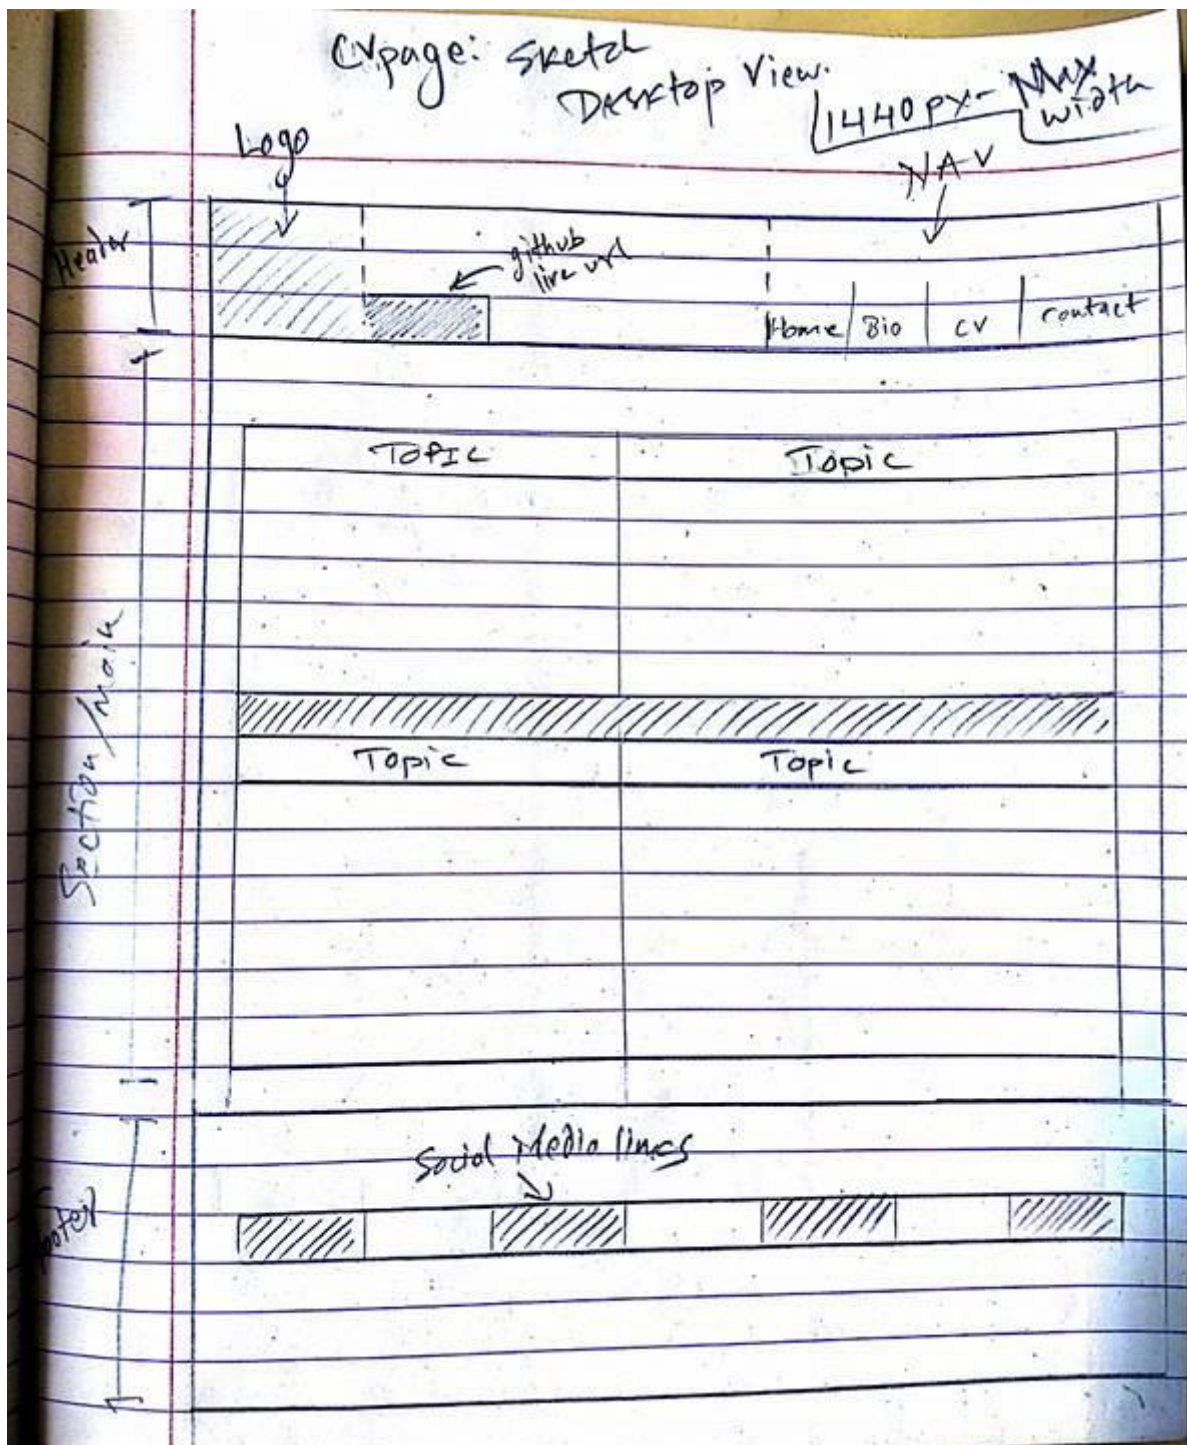 CV page: Sketch
Desktop View.
1440px - Max
width
Logo
NAV
Header
github
live url
Home Bio CV contact
TOPIC Topic
Section/main
Topic Topic
Social Media lines
footer